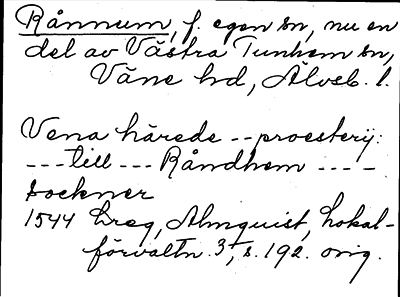 Rånnum, f. egen sn, nu en
del av Västra Tunhem sn,
Väne hd, Älvsb. l.
Vena härede -- proesterij:
--- till --- Råndhem ----
sockner
1544 Greg, Almquist, Lokal-
förvaltn. 3, s. 192. orig.